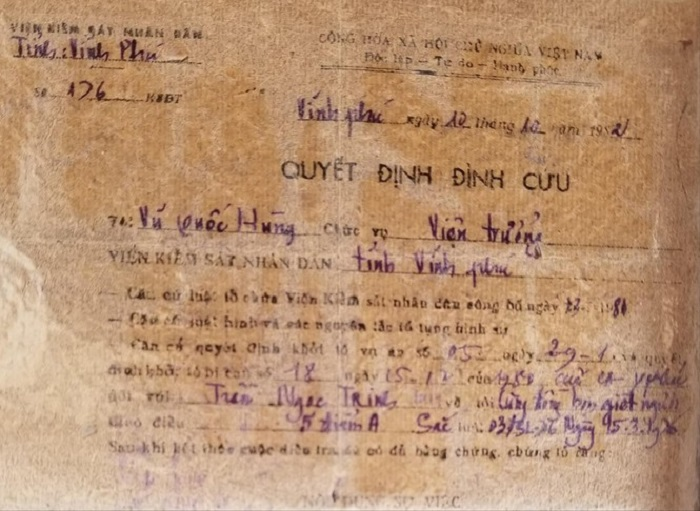 VIỆN KIỂM SÁT NHÂN DÂN
Tỉnh: Vĩnh Phú
CỘNG HÒA XÃ HỘI CHỦ NGHĨA VIỆT NAM
Độc lập — Tự do — Hạnh phúc
Số 176 KSĐT
Vĩnh phú ngày 10 tháng 10 năm
QUYẾT ĐỊNH ĐÌNH CỨU
Tôi: Vũ Quốc Hùng Chức vụ Viện trưởng
VIỆN KIỂM SÁT NHÂN DÂN tỉnh Vĩnh phú
— Căn cứ luật tổ chức Viện Kiểm sát nhân dân công bố ngày
— Căn cứ luật hình và các nguyên tắc tố tụng hình sự
Căn cứ quyết định khởi tố vụ án số 05 ngày 29-1 và quyết
định khởi tố bị can số 18 ngày 15.12 của
đối với: Trần Ngọc Trinh về tội
theo điều 5 điểm A Sắc 03/SL.76 Ngày 15.3.1976
Sau khi kết thúc cuộc điều tra đã có đủ bằng chứng, chứng tỏ rằng:
NỘI DUNG SỰ VIỆC